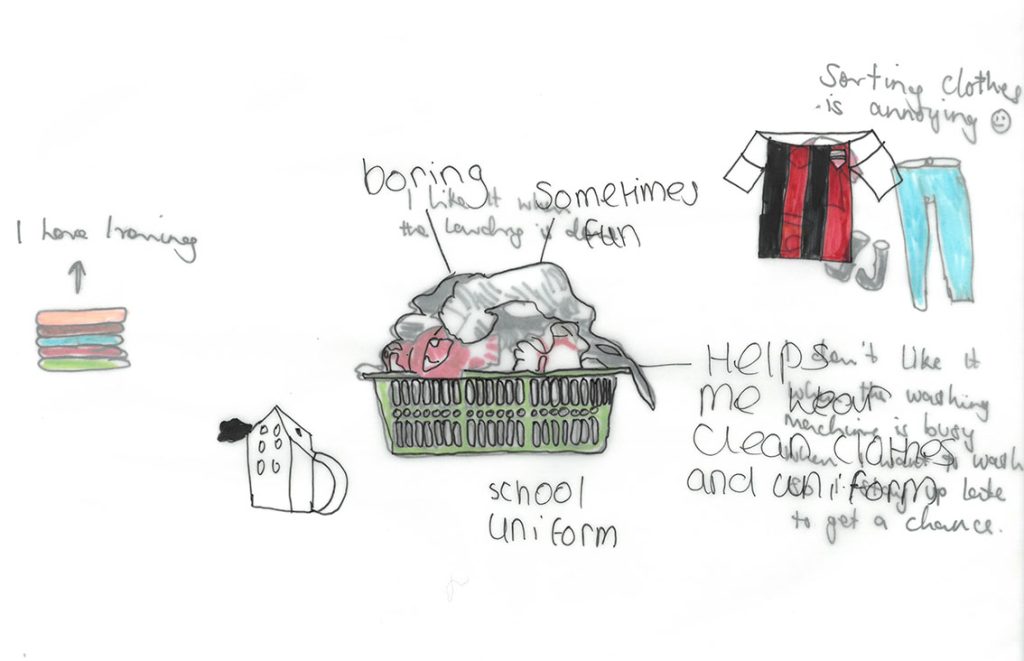 Sorting clothes
is annoying
boring
I like it when
the laundry is
Sometimes
fun
I Ironing
Helps
me wear
clean clothes
and uniform
don't like it
when the washing
machine is busy
when I want to wash
up late
to get a chance.
school
uniform